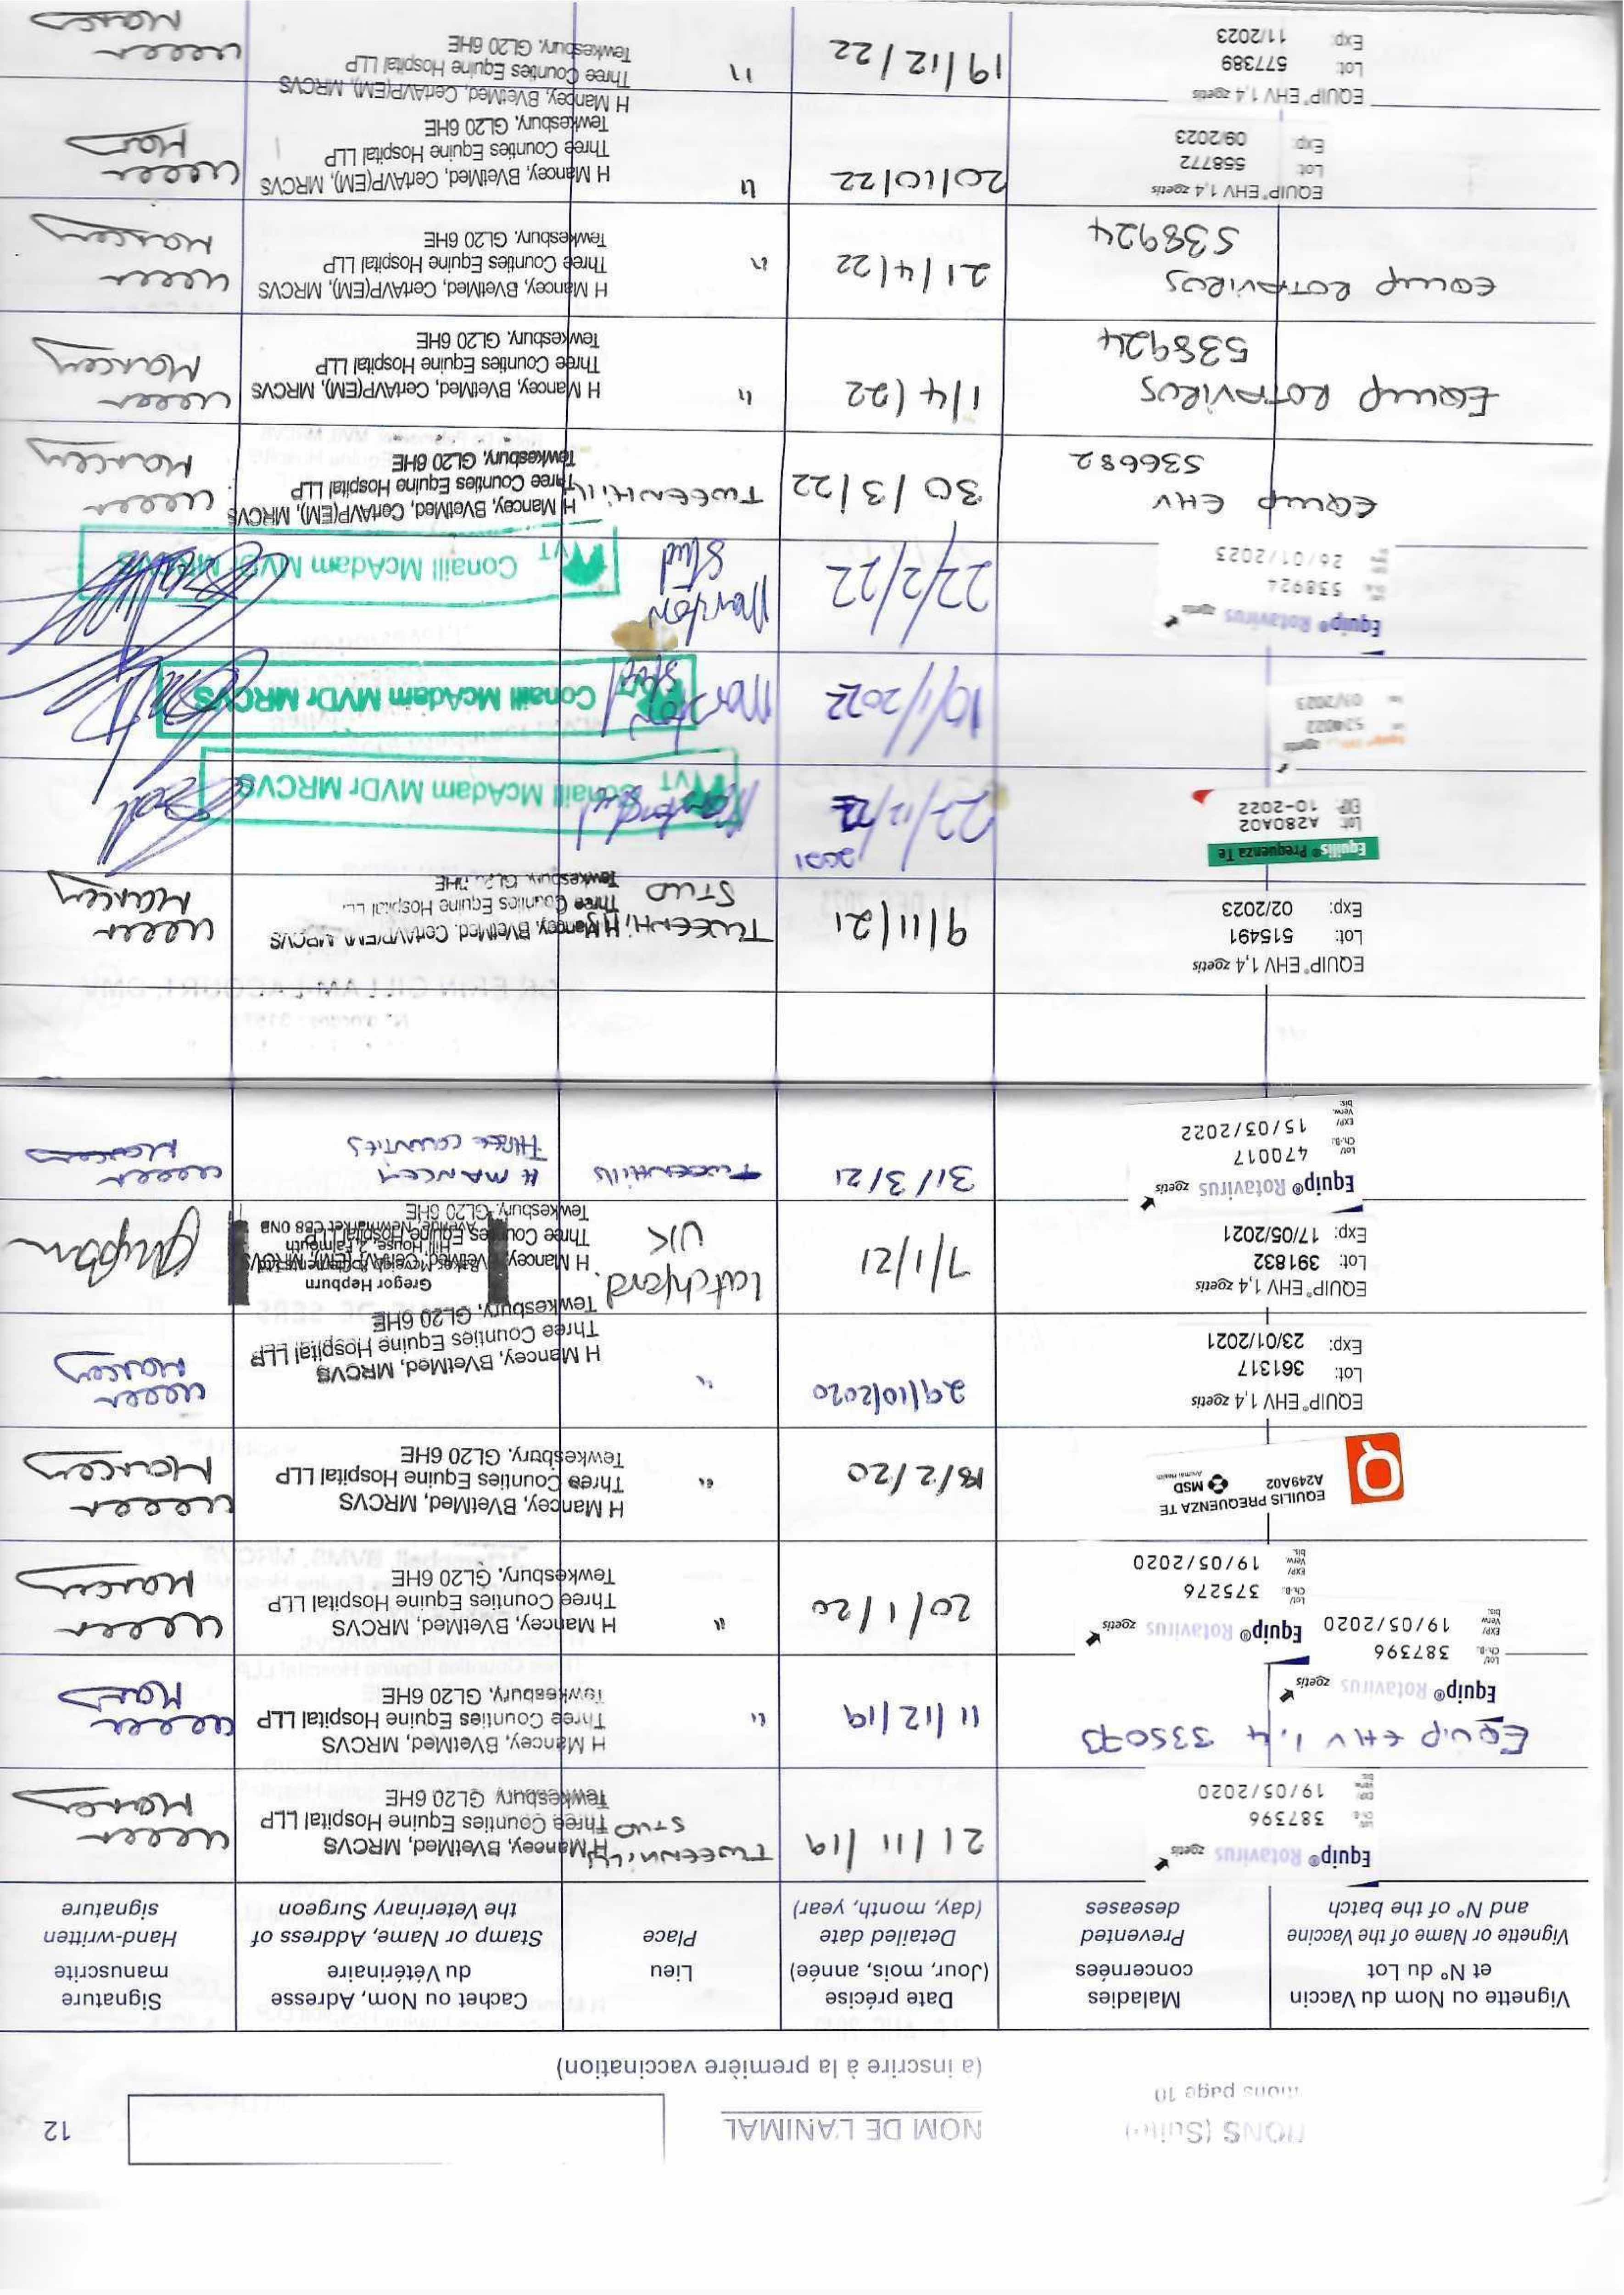 NOM DE L'ANIMAL
12
(a inscrire à la première vaccination)
Vignette ou Nom du Vaccin
et N° du Lot
Vignette or Name of the Vaccine
and N° of the batch
Maladies
concernées
Prevented
deseases
Date précise
(Jour, mois, année)
Detailed date
(day, month, year)
Lieu
Place
Cachet ou Nom, Adresse
du Vétérinaire
Stamp or Name, Address of
the Veterinary Surgeon
Signature
manuscrite
Hand-written
signature
Equip® Rotavirus zoetis
387396
19/05/2020
21/11/19
TWEENHILLS
STUD
H Mancey, BVetMed, MRCVS
Three Counties Equine Hospital LLP
Tewkesbury, GL20 6HE
EQUIP EHV 1,4 335073
Equip® Rotavirus zoetis
387396
19/05/2020
11/12/19
"
H Mancey, BVetMed, MRCVS
Three Counties Equine Hospital LLP
Tewkesbury, GL20 6HE
Equip® Rotavirus zoetis
375276
19/05/2020
20/1/20
"
H Mancey, BVetMed, MRCVS
Three Counties Equine Hospital LLP
Tewkesbury, GL20 6HE
EQUILIS PREQUENZA TE
A249A02 MSD
Animal Health
18/2/20
"
H Mancey, BVetMed, MRCVS
Three Counties Equine Hospital LLP
Tewkesbury, GL20 6HE
EQUIP® EHV 1,4 zoetis
Lot: 361317
Exp: 23/01/2021
29/10/2020
"
H Mancey, BVetMed, MRCVS
Three Counties Equine Hospital LLP
Tewkesbury, GL20 6HE
EQUIP® EHV 1,4 zoetis
Lot: 391832
Exp: 17/05/2021
7/1/21
Hatchford
UK
Gregor Hepburn
H Mancey, BVetMed, CertAVP(EM), MRCVS
Three Counties Equine Hospital LLP
Tewkesbury, GL20 6HE
Equip® Rotavirus zoetis
470017
15/03/2022
31/3/21
TWEENHILLS
H MANCEY
THREE COUNTIES
EQUIP® EHV 1,4 zoetis
Lot: 515491
Exp: 02/2023
9/11/21
TWEENHILLS
STUD
H Mancey, BVetMed, CertAVP(EM), MRCVS
Three Counties Equine Hospital LL
Tewkesbury, GL20 6HE
Equilis® Prequenza Te
Lot: A280A02
EXP: 10-2022
22/12/
2021
Conaill McAdam MVDr MRCVS
524022
03/2023
10/1/2022
Marston
Stud
Conaill McAdam MVDr MRCVS
Equip® Rotavirus zoetis
538924
26/01/2023
22/2/22
Marston
Stud
VT
Conaill McAdam MVDr MRCVS
EQUIP EHV
536682
30/3/22
TWEENHILLS
H Mancey, BVetMed, CertAVP(EM), MRCVS
Three Counties Equine Hospital LLP
Tewkesbury, GL20 6HE
EQUIP ROTAVIRUS
538924
1/4/22
"
H Mancey, BVetMed, CertAVP(EM), MRCVS
Three Counties Equine Hospital LLP
Tewkesbury, GL20 6HE
EQUIP ROTAVIRUS
538924
21/4/22
"
H Mancey, BVetMed, CertAVP(EM), MRCVS
Three Counties Equine Hospital LLP
Tewkesbury, GL20 6HE
EQUIP® EHV 1,4 zoetis
Lot: 558772
Exp: 09/2023
20/10/22
"
H Mancey, BVetMed, CertAVP(EM), MRCVS
Three Counties Equine Hospital LLP
Tewkesbury, GL20 6HE
EQUIP® EHV 1,4 zoetis
Lot: 577389
Exp: 11/2023
19/12/22
"
H Mancey, BVetMed, CertAVP(EM), MRCVS
Three Counties Equine Hospital LLP
Tewkesbury, GL20 6HE